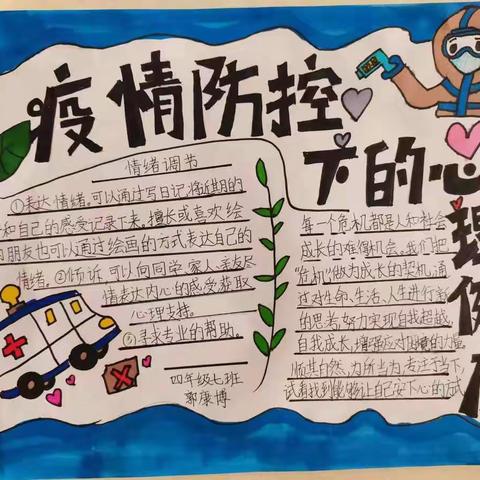 疫情防控
下的心理
情绪调节
①表达情绪。可以通过写日记将近期的
和自己的感受记录下来。擅长或喜欢绘
的朋友也可以通过绘画的方式表达自己的
情绪。②倾诉。可以向同学、家人、亲友尽
情表达内心的感受获取
心理支持。
③寻求专业的帮助。
四年级七班
郭康博
每一个危机都是人和社会
成长的难得机会。我们把
"危机"做为成长的契机,通
过对生命、生活、人生进行新
的思考,努力实现自我超越,
自我成长,增强应对困境的力量。
顺其自然,为所当为,专注于当下,
试着找到能够让自己安下心的